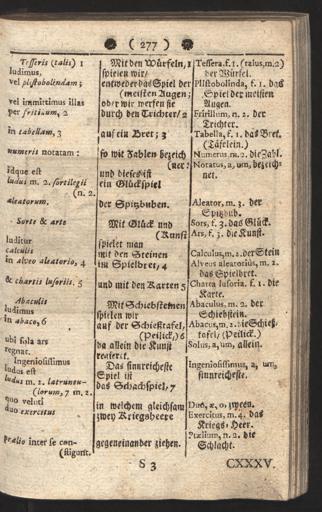 ( 277 )
Tesseris (talis) 1
ludimus,
vel plistobolindam;
vel immittimus illas
per fritillum, 2
in tabellam, 3
numeris notatam:
idque est
ludus m. 2. sortilegii
(n. 2.
aleatorum.
Sorte & arte
luditur
calculis
in alveo aleatorio, 4
& chartis lusoriis. 5
Abaculis
ludimus
in abaco, 6
ubi sola ars
regnat.
Ingeniosissimus
ludus est
ludus m. 2. latruncu-
(lorum, 7 m. 2.
quo veluti
duo exercitus
prælio inter se con-
(fligunt.
Mit den Würfeln, 1
spielen wir/
entweder das Spiel der
(meisten Augen;
oder wir werfen sie
durch den Trichter/ 2
auf ein Bret; 3
so mit Zahlen bezeich
(net:
und dieses ist
ein Glückspiel
der Spitzbuben.
Mit Glück und
(Kunst
spielet man
mit den Steinen
im Spielbret, 4
und mit den Karten 5
Mit Schiebsteinen
spielen wir
auf der Schießtafel,
(Peilke,) 6
da allein die Kunst
regieret.
Das sinnreicheste
Spiel ist
das Schachspiel, 7
in welchem gleichsam
zwey Kriegsheere
gegeneinander ziehen.
Tessera, f. 1. (talus, m. 2)
der Würfel.
Plistobolinda, f. 1. das
Spiel der meisten
Augen.
Fritillum, n. 2. der
Trichter.
Tabella, f. 1. das Bret.
(Täfelein.)
Numerus, m. 2. die Zahl.
Notatus, a, um, bezeich
net.
Aleator, m. 3. der
Spitzbub.
Sors, f. 3. das Glück.
Ars, f. 3. die Kunst.
Calculus, m. 2. der Stein
Alveus aleatorius, m. 2.
das Spielbret.
Charta lusoria. f. 1. die
Karte.
Abaculus, m. 2. der
Schiebstein.
Abacus, m. 2. die Schieß-
tafel, (Peilke.)
Solus, a, um, allein.
Ingeniosissimus, a, um,
sinnreicheste.
Duo, æ, o, zween.
Exercitus, m. 4. das
Kriegs-Heer.
Prælium, n. 2. die
Schlacht.
S 3
CXXXV.